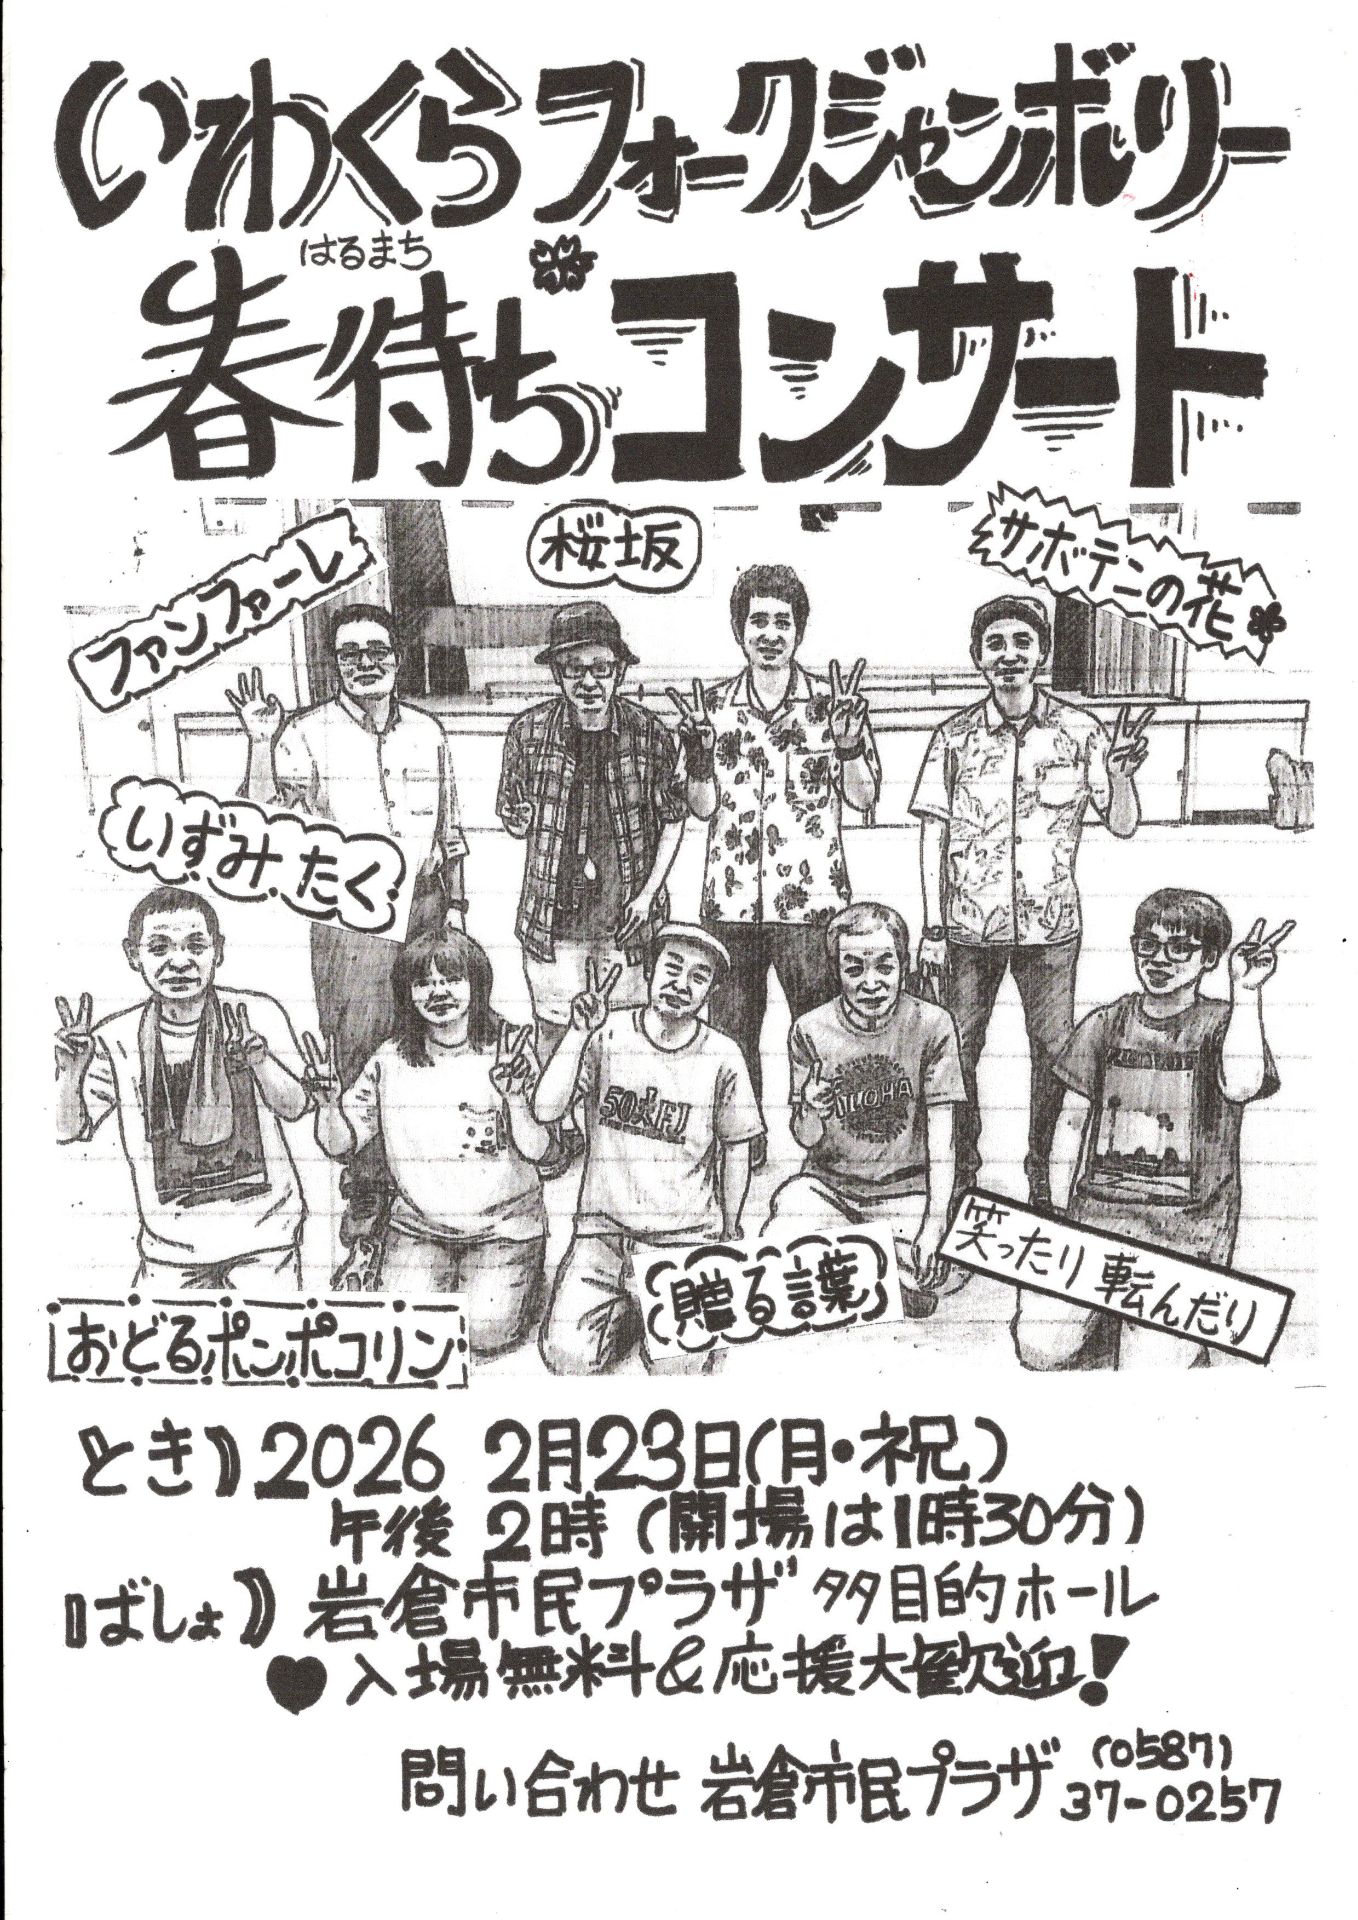 いわくらフォークジャンボリー
はるまち
春待ちコンサート
ファンファーレ
桜坂
サボテンの花
いずみたく
50 大行
ALOHA
贈る言葉
笑ったり転んだり
おどるポンポコリン
とき》2026 2月23日(月・祝)
午後 2時 (開場は1時30分)
《ばしょ》岩倉市民プラザ 多目的ホール
♥入場無料&応援大歓迎!
問い合わせ 岩倉市民プラザ (0587)
37-0257